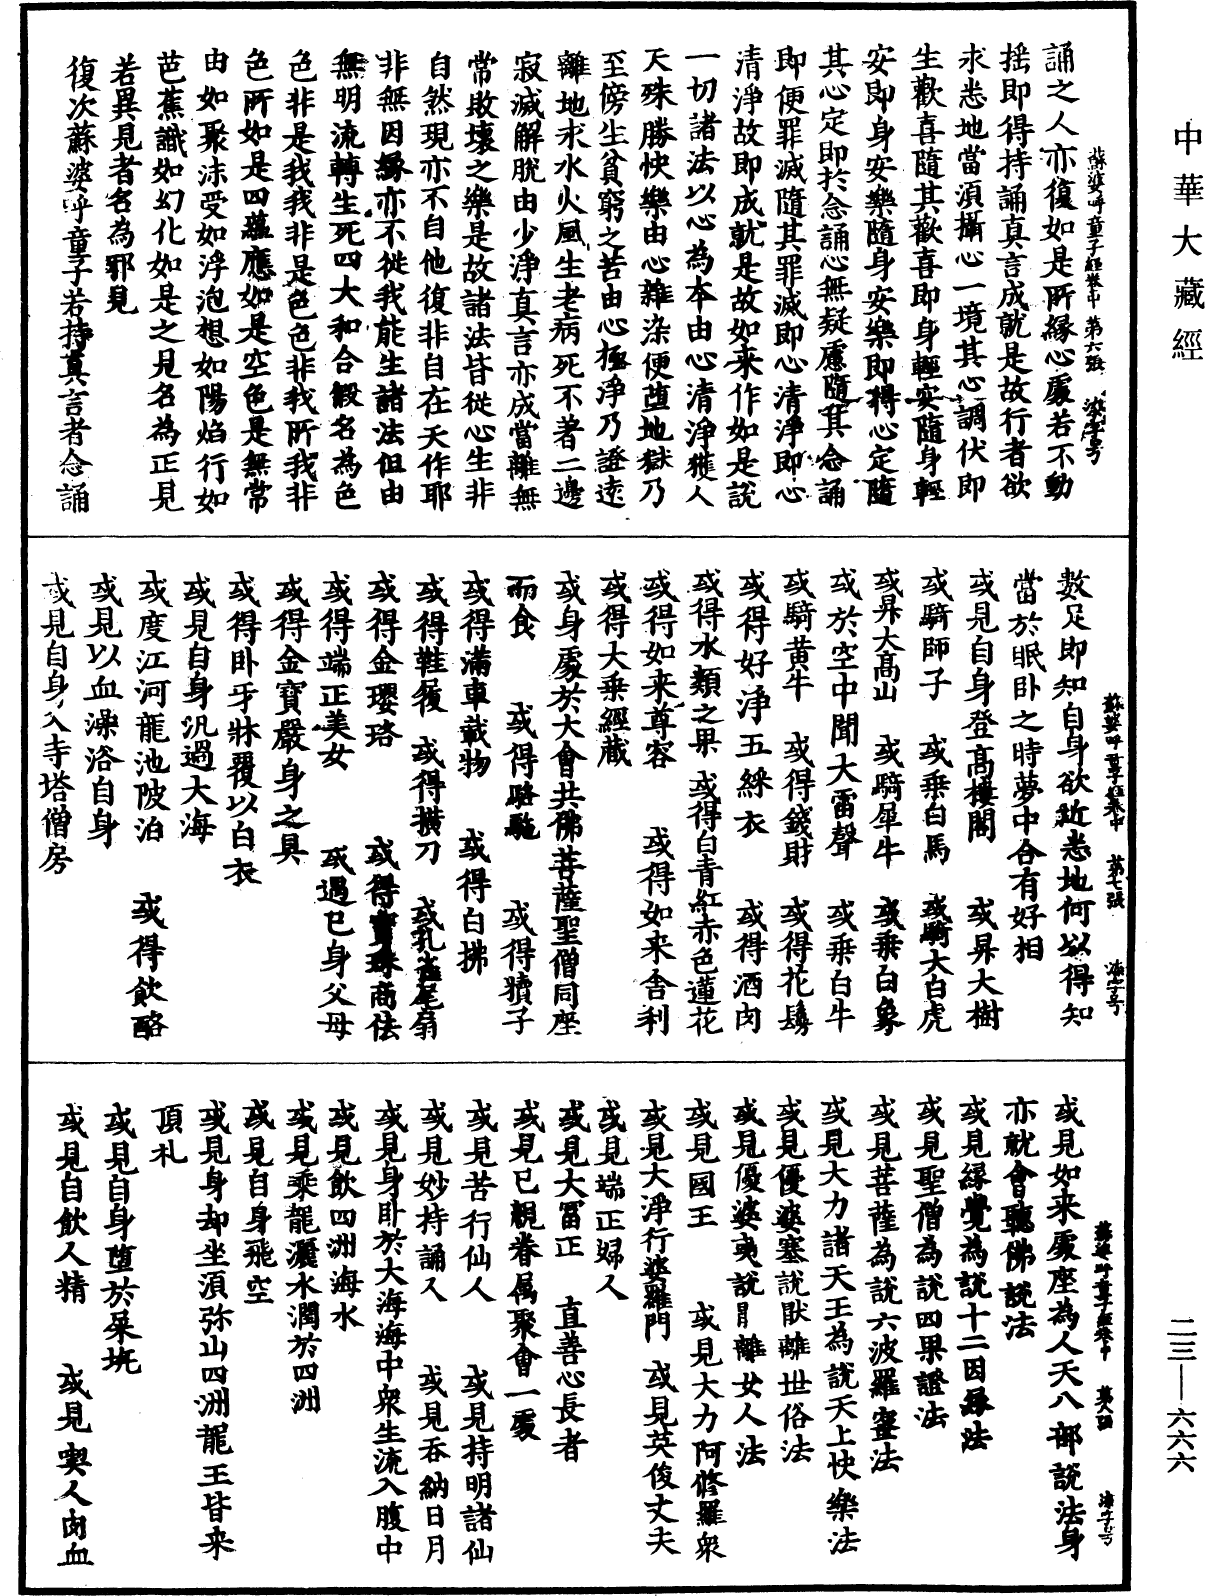 中華大藏經
誦之人亦復如是所緣心處若不動
搖即得持誦真言成就是故行者欲
求悉地當須攝心一境其心調伏即
生歡喜隨其歡喜即身輕安隨身輕
安即身安樂隨身安樂即得心定隨
其心定即於念誦心無疑慮隨其念誦
即便罪滅隨其罪滅即心清淨即心
清淨故即成就是故如来作如是說
一切諸法以心為本由心清淨獲人
天殊勝快樂由心雜染便墮地獄乃
至傍生貧窮之苦由心極淨乃證遠
離地水水火風生老病死不著二邊
寂滅解脫由少淨真言亦成當離無
常敗壞之樂是故諸法皆從心生非
自然現亦不自他復非自在天作耶
非無因緣亦不從我能生諸法但由
無明流轉生死四大和合假名為色
色非是我我非是色色非我所我非
色所如是四蘊應如是空色是無常
由如聚沫受如浮泡想如陽焰行如
芭蕉識如幻化如是之見名為正見
若異見者名為邪見
復次蘇婆呼童子若持真言者念誦
蘇婆呼童子經卷中 第六張
數足即知自身欲近悉地何以得知
當於眠卧之時夢中合有好相
或見自身登高樓閣 或昇大樹
或騎師子 或乘白馬 或騎大白虎
或昇大高山 或騎犀牛 或乘白象
或於空中聞大雷聲 或乘白牛
或騎黃牛 或得錢財 或得花鬘
或得好淨五綵衣 或得酒肉
或得水類之果 或得白青紅赤色蓮花
或得如来尊容 或得如来舍利
或得大乘經藏
或身處於大會共佛菩薩聖僧同座
而食 或得駱駞 或得犢子
或得滿車載物 或得白拂
或得鞋履 或得橫刀 或孔雀尾扇
或得金瓔珞 或得寶珠商佉
或得端正美女 或遇已身父母
或得金寶嚴身之具
或得卧牙牀覆以白衣
或見自身汎過大海
或度江河龍池陂泊 或得飲酪
或見以血澡浴自身
或見自身入寺塔僧房
蘇婆呼童子經卷中 第七張
或見如来處座為人天八部說法身
亦就會聽佛說法
或見緣覺為說十二因緣法
或見聖僧為說四果證法
或見菩薩為說六波羅蜜法
或見大力諸天王為說天上快樂法
或見優婆塞說猒離世俗法
或見優婆夷說猒離女人法
或見國王 或見大力阿修羅衆
或見大淨行婆羅門 或見英俊丈夫
或見端正婦人
或見大冨正 直善心長者
或見已親眷屬聚會一處
或見苦行仙人 或見持明諸仙
或見妙持誦人 或見吞納日月
或見身卧於大海海中衆生流入腹中
或見飲四洲海水
或見乘龍灑水潤於四洲
或見自身飛空
或見身却坐須弥山四洲龍王皆来
頂礼
或見自身墮於屎坑
或見自飲人精 或見喫人肉血
蘇婆呼童子經卷中 第八張
二三—六六六